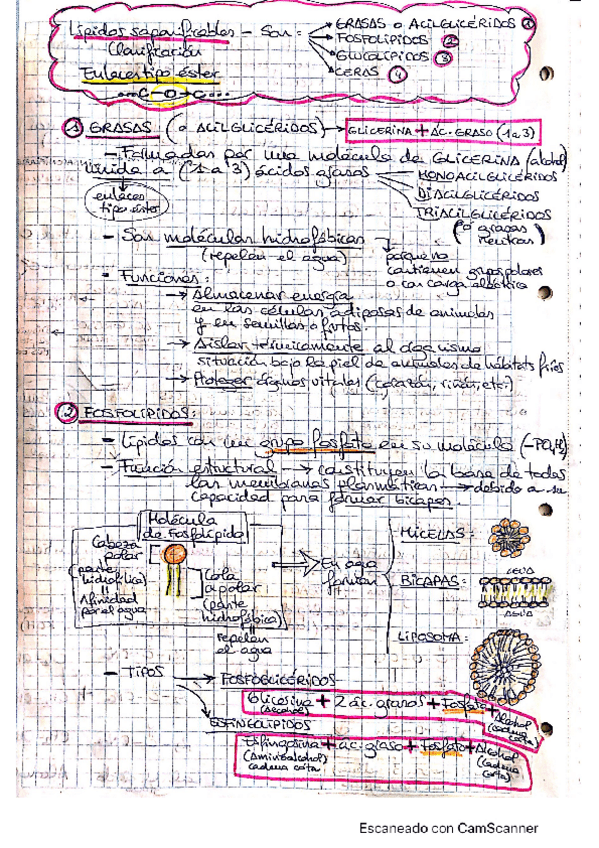 Lípidos saponificables - Son:
Clasificación
GRASAS o ACILGLICÉRIDOS 1
FOSFOLÍPIDOS 2
GLUCOLÍPIDOS 3
CERAS 4
Enlaces tipo éster
...C-O-C...
1 GRASAS (o ACILGLICÉRIDOS) → GLICERINA + ÁC. GRASO (1 a 3)
- Formadas por una molécula de GLICERINA (alcohol)
unida a (1 a 3) ácidos grasos
MONOACILGLICÉRIDOS
DIACILGLICÉRIDOS
TRIACILGLICÉRIDOS
(o grasas
neutras)
enlaces
tipo éster
- Son moléculas hidrofóbicas
(repelen el agua)
porque no
contienen grupos polares
o con carga eléctrica
- Funciones:
→ Almacenar energía
en las células adiposas de animales
y en semillas o frutos.
→ Aislar térmicamente al organismo
situación bajo la piel de animales de hábitats fríos
→ Proteger órganos vitales (corazón, riñón, etc.)
2 FOSFOLÍPIDOS:
- Lípidos con un grupo fosfato en su molécula
- Función estructural → constituyen la base de todas
las membranas plasmáticas → debido a su
capacidad para formar bicapas.
Molécula
de Fosfolípido
Cabeza
polar
(parte
hidrofílica)
Afinidad
por el agua
Cola
apolar
(parte
hidrofóbica)
repelen
el agua
En agua
forman
MICELAS:
BICAPAS:
AGUA
LIPOSOMA:
- TIPOS
→ FOSFOGLICÉRIDOS
Glicerina + 2 ác. grasos + Fosfato + Alcohol
(alcohol)
(cadena
corta)
ESFINGOLÍPIDOS
Esfingosina + ác. graso + Fosfato + Alcohol
(aminoalcohol)
cadena corta
(cadena
corta)
Escaneado con CamScanner